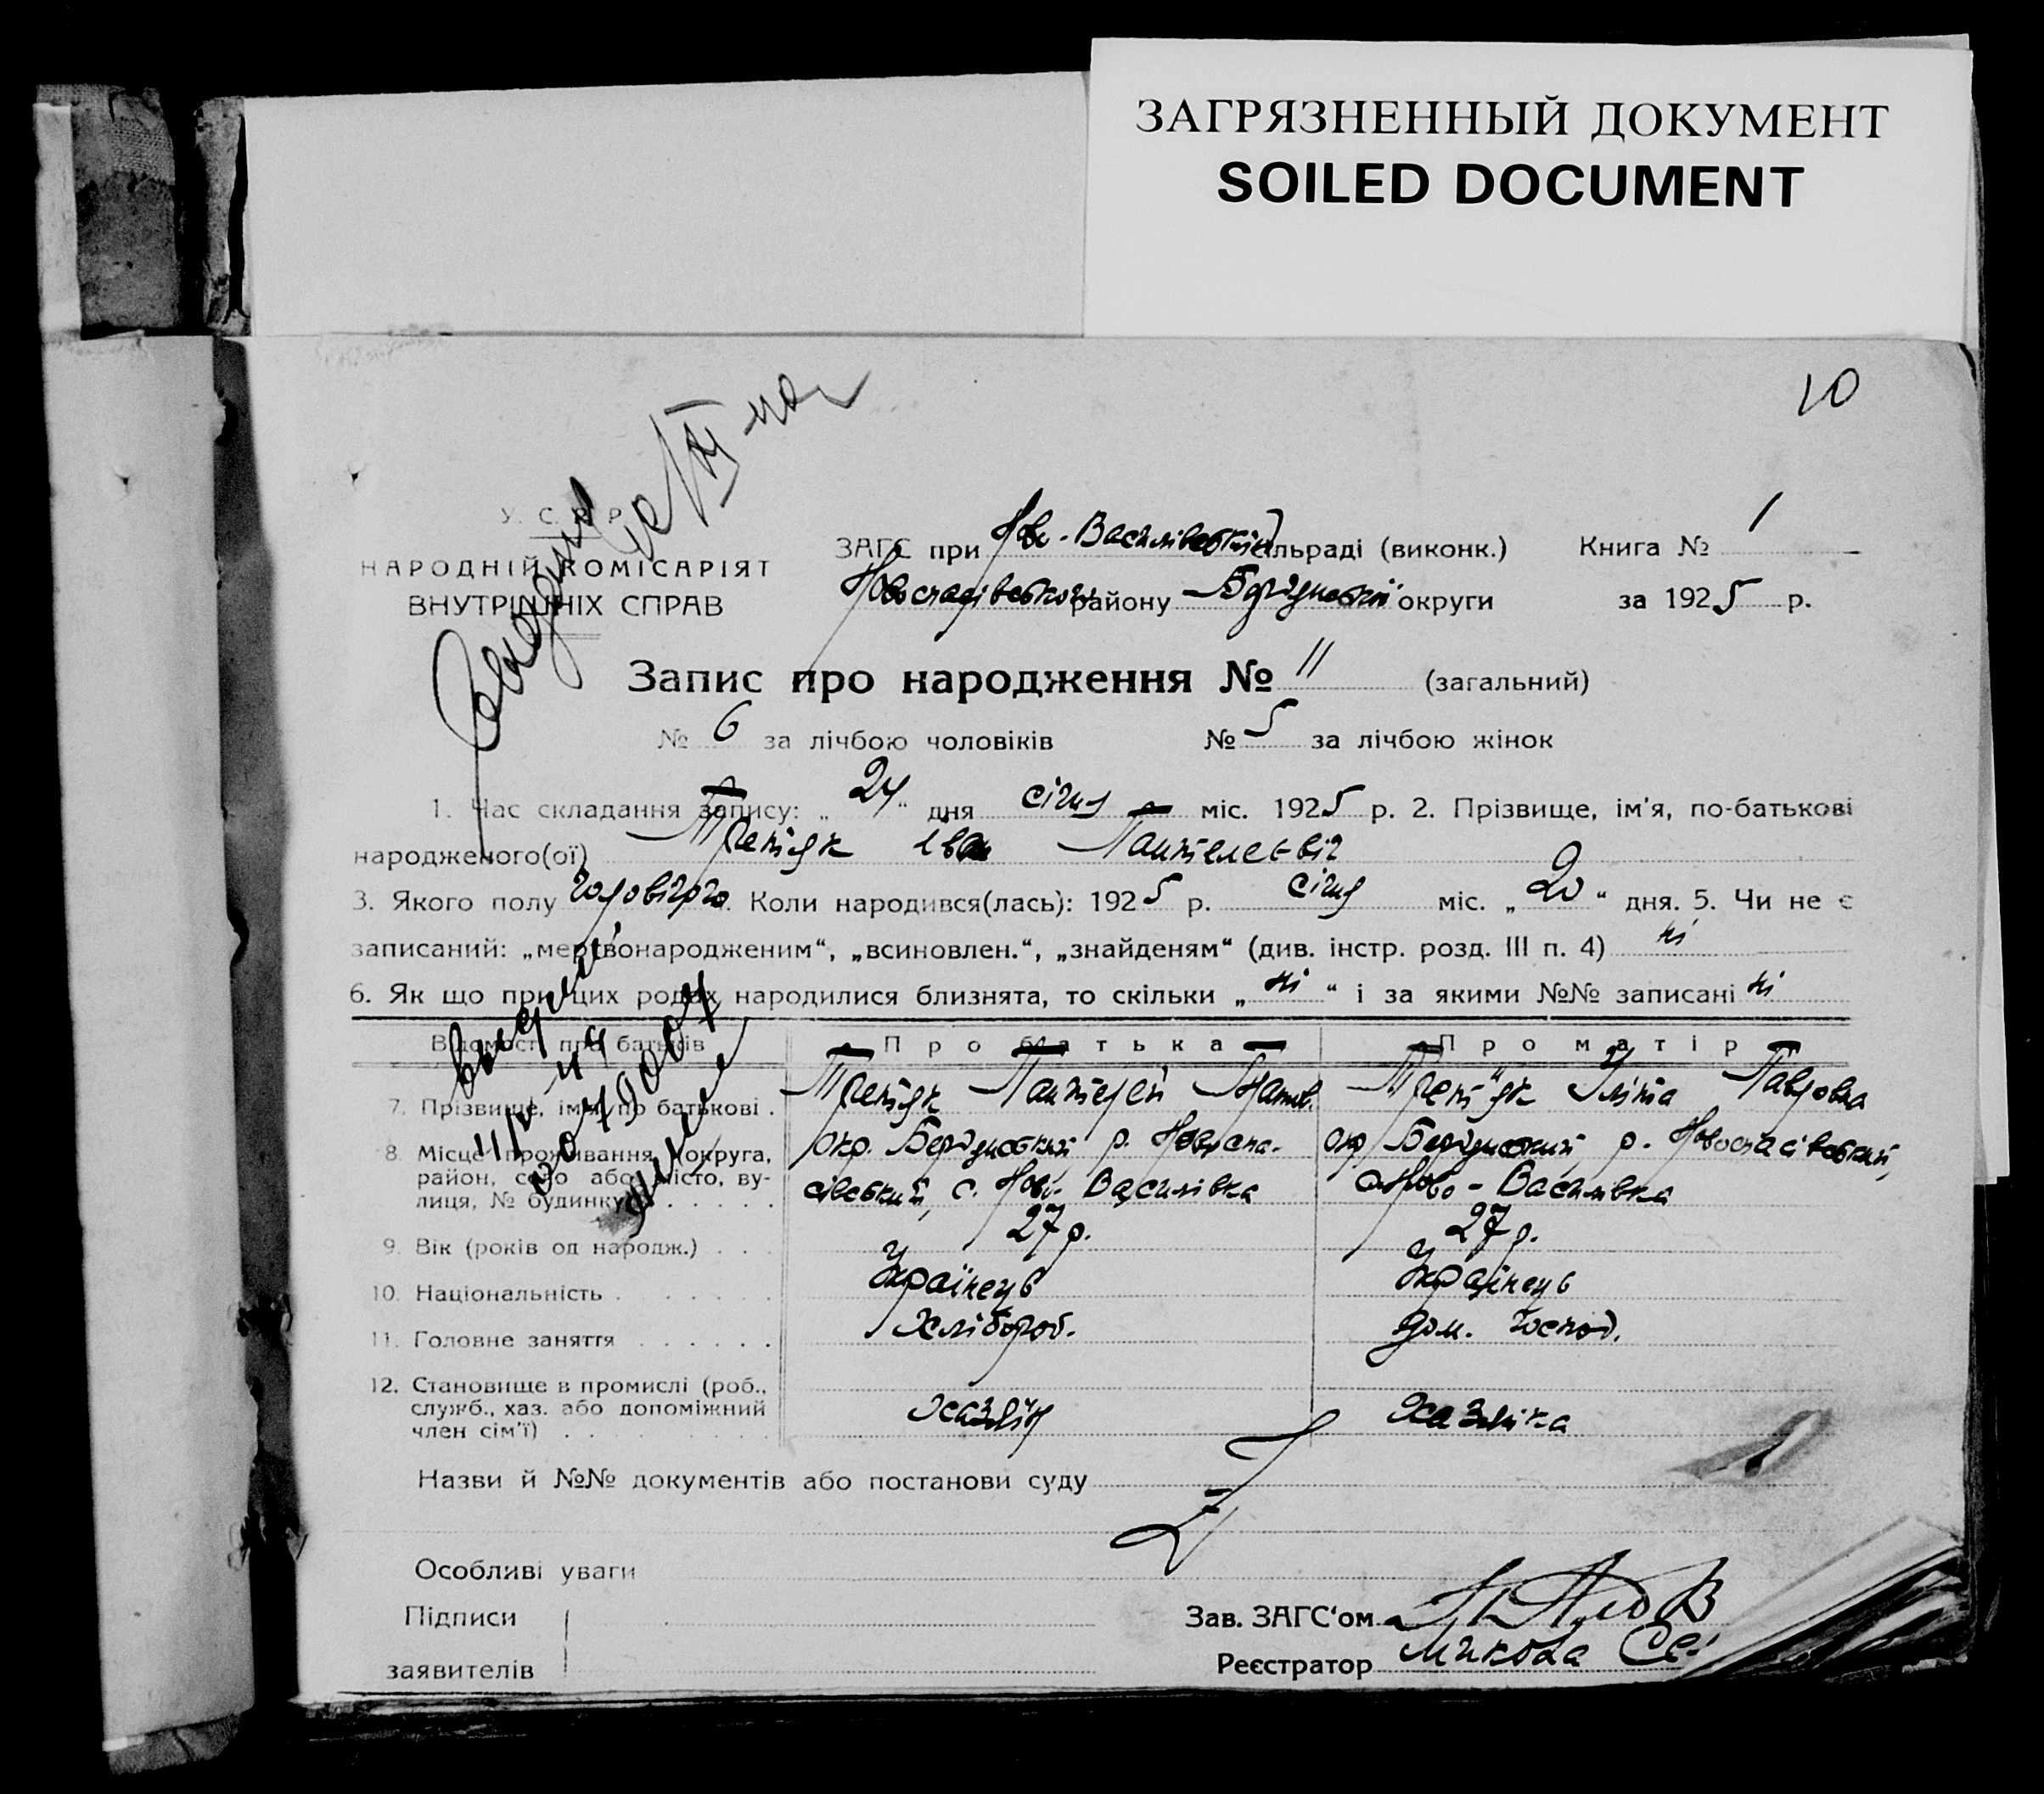 ЗАГРЯЗНЕННЫЙ ДОКУМЕНТ
SOILED DOCUMENT
10
У. С. Р. Р.
НАРОДНІЙ КОМІСАРІЯТ
ВНУТРІШНІХ СПРАВ
ЗАГС при Ново-Василівській сільраді (виконк.) Книга № 1
Новоспасівського району Бердянської округи за 1925 р.
Запис про народження № 11 (загальний)
№ 6 за лічбою чоловіків № 5 за лічбою жінок
1. Час складання запису: „24“ дня січня міс. 1925 р. 2. Прізвище, ім'я, по-батькові
народженого(ої) Третяк Іван Пантелеєвіч
3. Якого полу чоловічого. Коли народився(лась): 1925 р. січня міс. „20“ дня. 5. Чи не є
записаний: „мертвонародженим“, „всиновлен.“, „знайденям“ (див. інстр. розд. III п. 4) ні
6. Як що при цих родах народилися близнята, то скільки „ні“ і за якими №№ записані ні
Відомості про батьків Про батька Про матір
7. Прізвище, ім'я, по батькові . Третяк Пантелей Третяк Павловна
8. Місце проживання (округа, окр. Бердянський р. Новоспа- окр Бердянський р. Новоспасівський,
район, село або місто, ву- сівський, с. Ново-Василівка с. Ново-Василівка
лиця, № будинку) . . . . .
9. Вік (років од народж.) . . . 27 р. 27 р.
10. Національність . . . . . . Українець Українець
11. Головне заняття . . . . . . Хлібороб. Дом. господ.
12. Становище в промислі (роб.,
служб., хаз. або допоміжний Хазяїн Хазяйка
член сім'ї) . . . . . . . .
Назви й №№ документів або постанови суду
Особливі уваги
Підписи Зав. ЗАГС'ом
заявителів Реєстратор